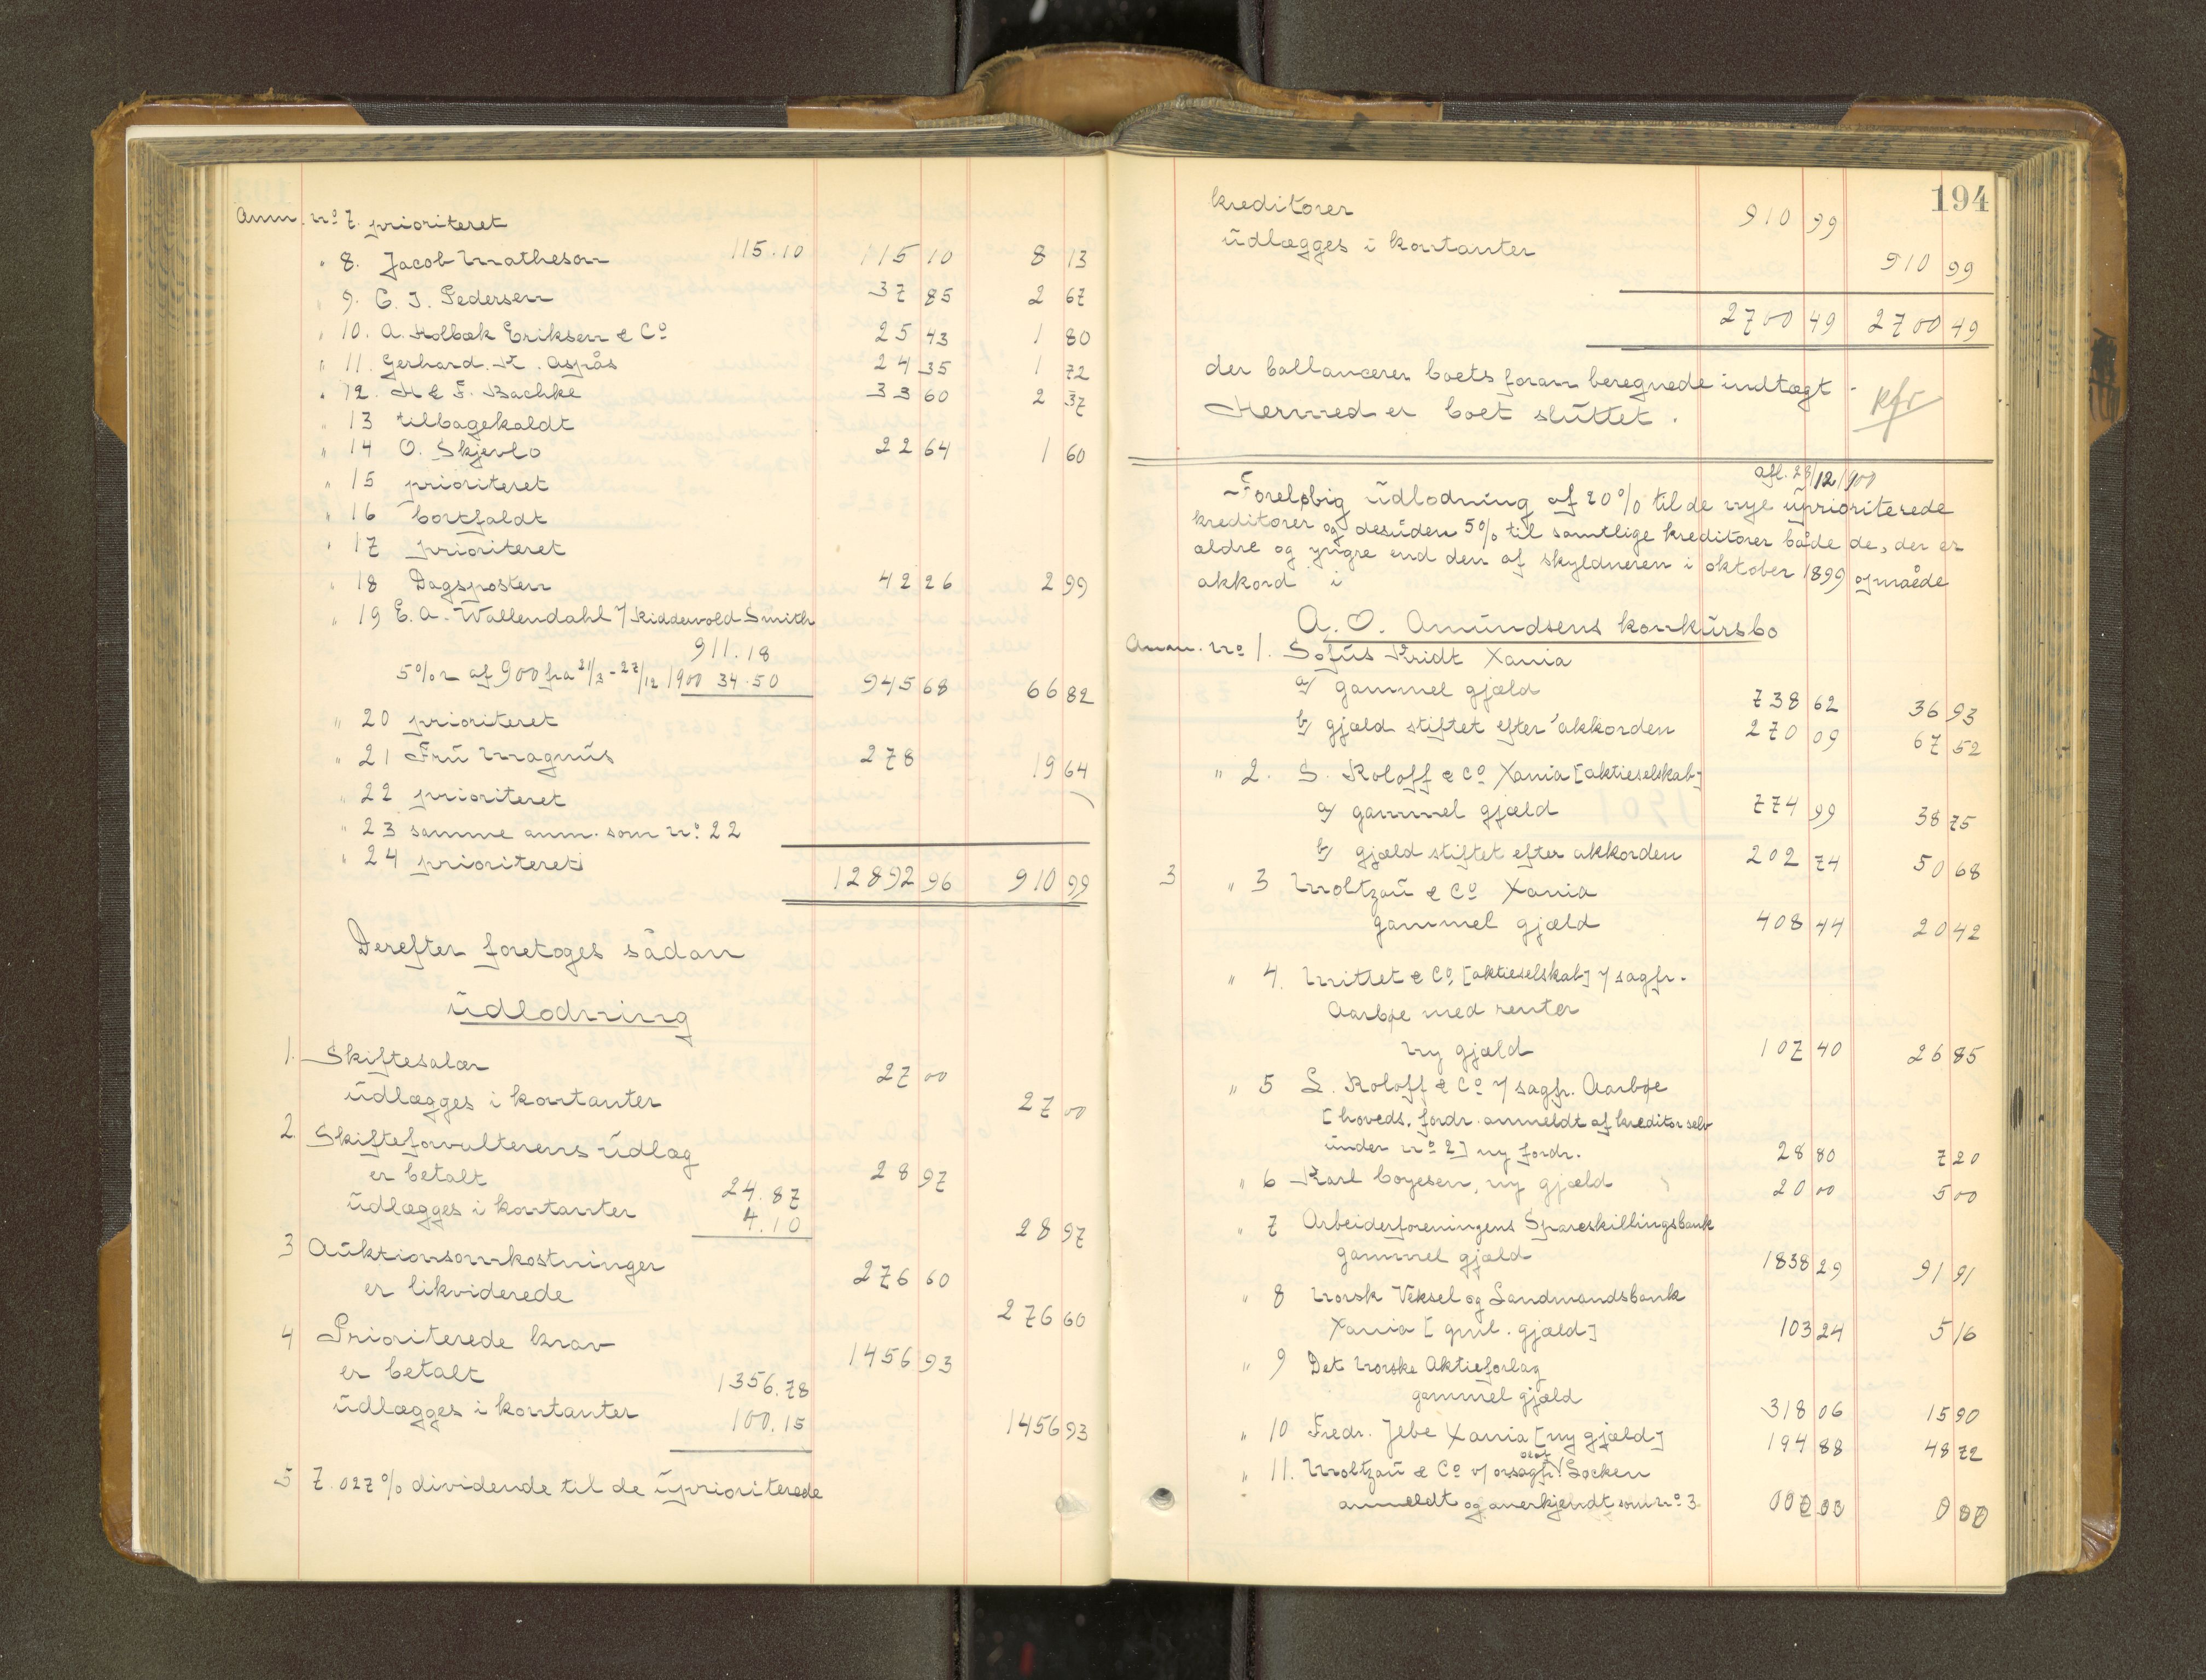 Anm. no 7. prioriteret
" 8. Jacob Matheson 115.10 115 10 8 13
" 9. C. J. Pedersen 37 85 2 67
" 10. A. Holbæk Eriksen & Co 25 43 1 80
" 11. Gerhard. H. Asprås 24 35 1 72
" 12. H & F. Bachke 33 60 2 37
" 13 tilbagekaldt
" 14 O. Skjevlo 22 64 1 60
" 15 prioriteret
" 16 bortfaldt
" 17 prioriteret
" 18 Dagsposten 42 26 2 99
" 19 E. A. Wallendahl / Riddervold Smith
911.18
5% r af 900 fra 21/3 - 27/12 1900 34.50 945 68 66 82
" 20 prioriteret
" 21 Fru Magnus 278 19 64
" 22 prioriteret
" 23 samme anm. som no. 22
" 24 prioriteret
12892 96 910 99
Derefter foretoges sådan
udlodning
1. Skiftesalær 27 00
udlægges i kontanter 27 00
2. Skifteforvalterens udlæg 28 97
er betalt 24.87
udlægges i kontanter 4.10 28 97
3 Auktionsomkostninger 276 60
er likviderede 276 60
4 Prioriterede krav 1456 93
er betalt 1356.78
udlægges i kontanter 100.15 1456 93
5 7.027% dividende til de uprioriterede
194
kreditorer 910 99
udlægges i kontanter 910 99
2700 49 2700 49
der ballancerer boets foran beregnede indtægt -
Hermed er boet sluttet.
afl. 28/12/900
Foreløbig udlodning af 20% til de nye uprioriterede
kreditorer og desuden 5% til samtlige kreditorer både de, der er
ældre og yngre end den af skyldneren i oktober 1899 opnåede
akkord i
A. O. Amundsens konkursbo
Anm. no 1. Sofus Kridt Xania
a/ gammel gjæld 738 62 36 93
b/ gjæld stiftet efter akkorden 270 09 67 52
" 2. S. Roloff & Co Xania [aktieselskab]
a/ gammel gjæld 774 99 38 75
b/ gjæld stiftet efter akkorden 202 74 50 68
3 " 3 Moltzau & Co Xania
gammel gjæld 408 44 20 42
" 4. Mittet & Co, [aktieselskab] / sagfr.
Aarbøe med renter
ny gjæld 107 40 26 85
" 5 L. Roloff & Co / sagfr. Aarbøe
[hoveds. fordr. anmeldt af kreditor selv
under no 2] ny fordr. 28 80 7 20
" 6 Karl Boyesen, ny gjæld 20 00 5 00
" 7 Arbeiderforeningens Spareskillingsbank
gammel gjæld 1838 29 91 91
" 8 Norsk Veksel og Landmandsbank
Xania [gml. gjæld] 103 24 5 16
" 9 Det Norske Aktieforlag
gammel gjæld 318 06 15 90
" 10 Fredr. Jebe Xania [ny gjæld] 194 88 48 72
" 11. Moltzau & Co v/ orsagfr. Socken
anmeldt og anerkjendt som no 3. 000 00 0 00